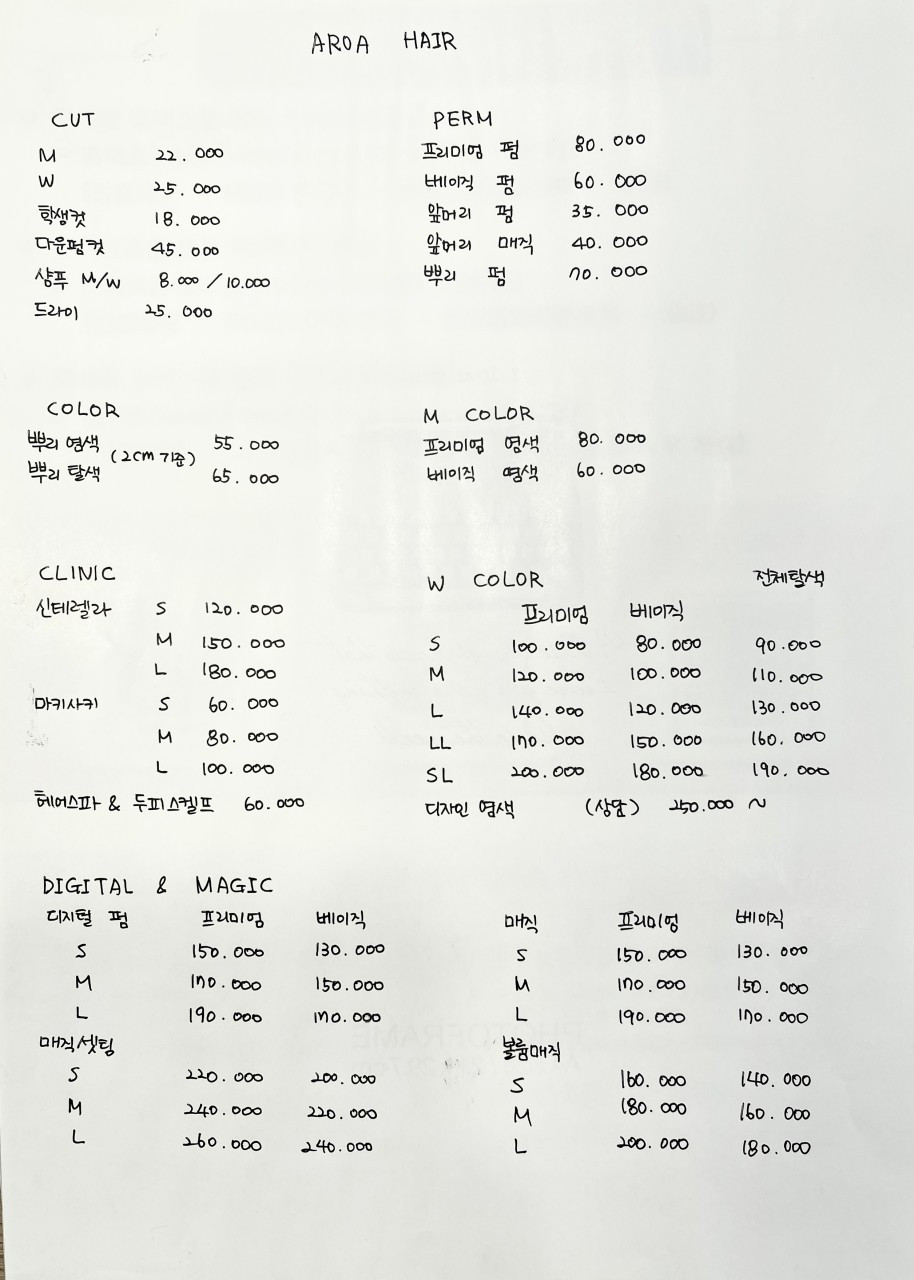 AROA HAIR
CUT
M 22.000
W 25.000
학생컷 18.000
다운펌컷 45.000
샴푸 M/W 8.000 / 10.000
드라이 25.000
PERM
프리미엄 펌 80.000
베이직 펌 60.000
앞머리 펌 35.000
앞머리 매직 40.000
뿌리 펌 70.000
COLOR
뿌리 염색 (2cm 기준) 55.000
뿌리 탈색 65.000
M COLOR
프리미엄 염색 80.000
베이직 염색 60.000
CLINIC
신데렐라 S 120.000
M 150.000
L 180.000
마키사키 S 60.000
M 80.000
L 100.000
헤어스파 & 두피스켈프 60.000
W COLOR 전체탈색
프리미엄 베이직
S 100.000 80.000 90.000
M 120.000 100.000 110.000
L 140.000 120.000 130.000
LL 170.000 150.000 160.000
SL 200.000 180.000 190.000
디자인 염색 (상담) 250.000 ~
DIGITAL & MAGIC
디지털 펌 프리미엄 베이직
S 150.000 130.000
M 170.000 150.000
L 190.000 170.000
매직셋팅
S 220.000 200.000
M 240.000 220.000
L 260.000 240.000
매직 프리미엄 베이직
S 150.000 130.000
M 170.000 150.000
L 190.000 170.000
볼륨매직
S 160.000 140.000
M 180.000 160.000
L 200.000 180.000